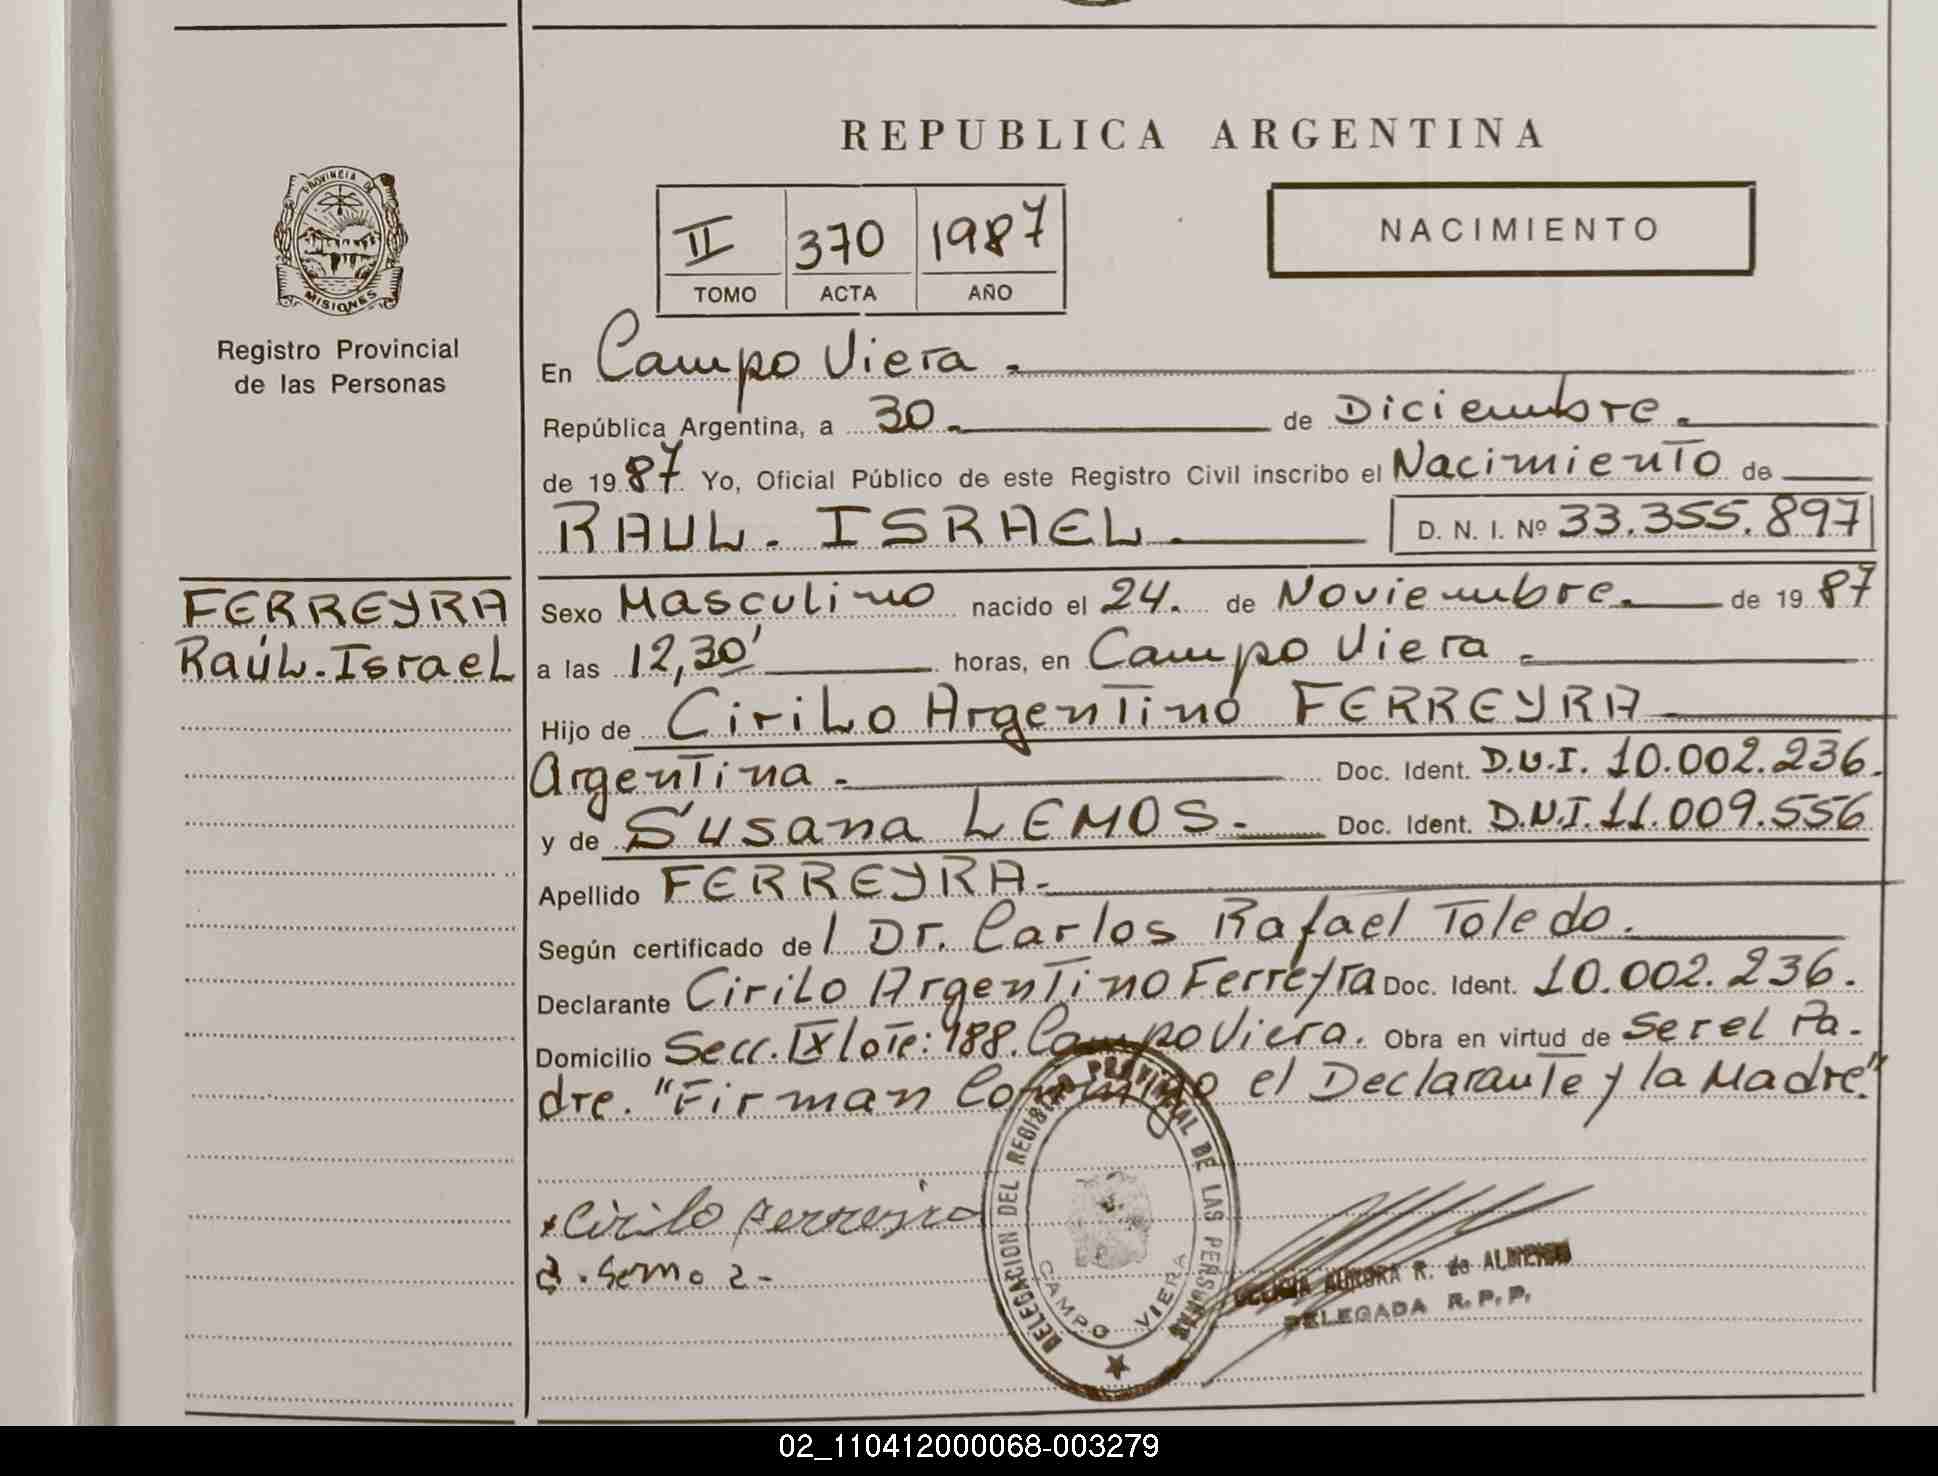 REPUBLICA ARGENTINA
PROVINCIA DE
MISIONES
Registro Provincial
de las Personas
II 370 1987
TOMO ACTA AÑO
NACIMIENTO
En Campo Viera.
República Argentina, a 30. de Diciembre.
de 1987 Yo, Oficial Público de este Registro Civil inscribo el Nacimiento de
RAUL. ISRAEL. D. N. I. Nº 33.355.897
FERREYRA
Raúl. Israel
Sexo Masculino nacido el 24. de Noviembre. de 1987
a las 12,30' horas, en Campo Viera.
Hijo de Cirilo Argentino FERREYRA
Argentina. Doc. Ident. D.N.I. 10.002.236.
y de Susana LEMOS. Doc. Ident. D.N.I. 11.009.556
Apellido FERREYRA.
Según certificado del Dr. Carlos Rafael Toledo.
Declarante Cirilo Argentino Ferreyra Doc. Ident. 10.002.236.
Domicilio Secc. IX lote: 188. Campo Viera. Obra en virtud de Ser el Pa-
dre. "Firman Conmigo el Declarante y la Madre."
Cirilo Ferreyra
DELEGACION DEL REGISTRO PROVINCIAL DE LAS PERSONAS
CAMPO VIERA
AURORA R. de
DELEGADA R. P. P.
02_110412000068-003279